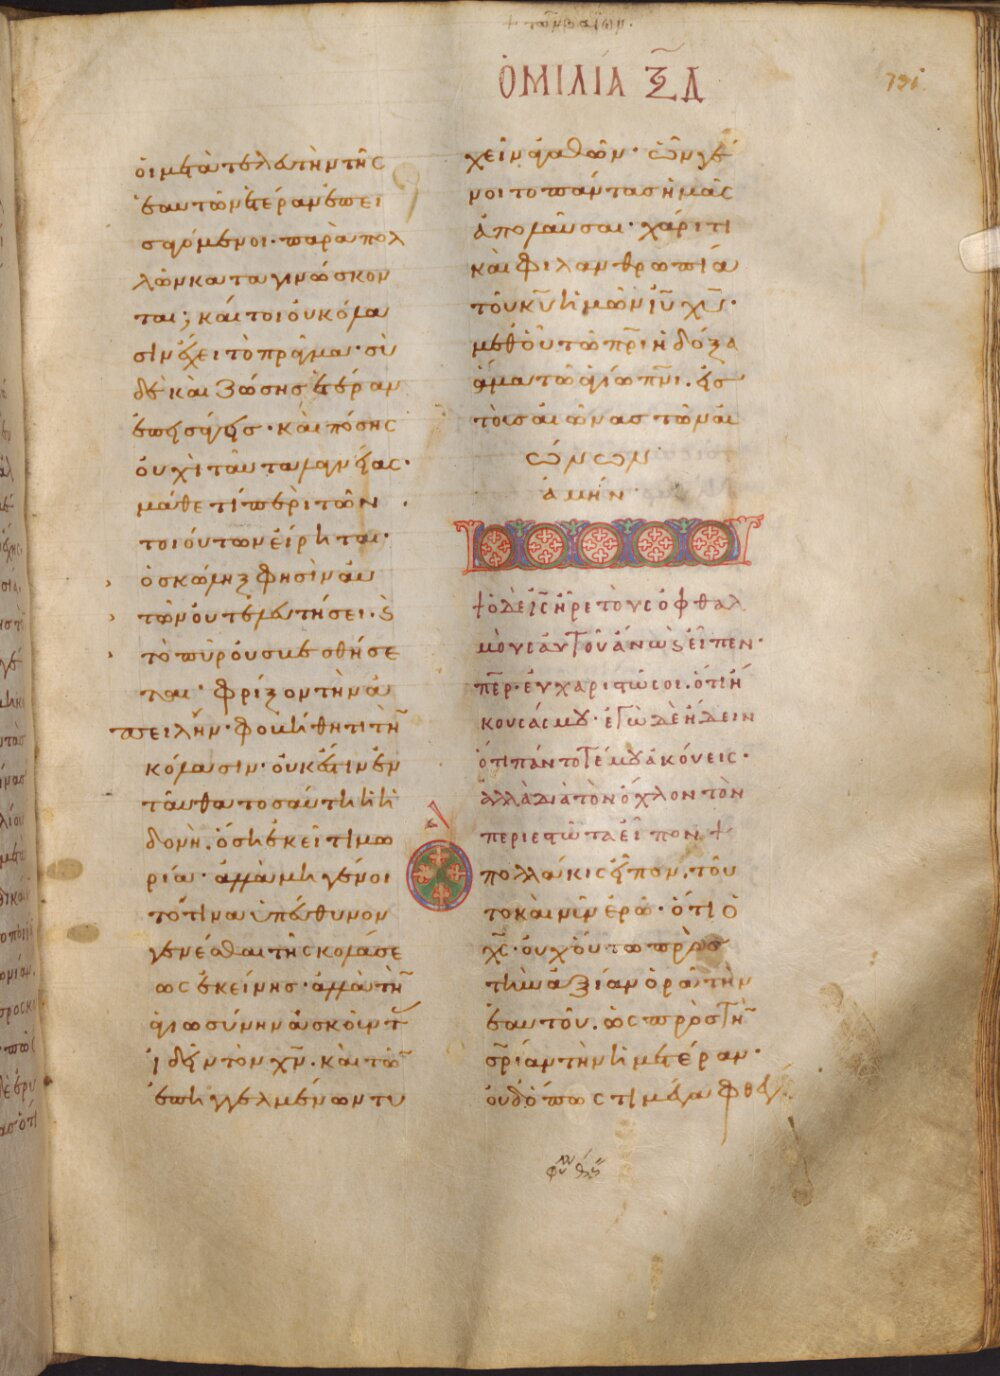 + τῶν βαΐων.
ὉΜΙΛΊΑ ΞΔ
οἱ μετὰ τελευτὴν τῆς
ἑαυτῶν ἑτέραν ἐπει
σαγόμενοι· παρὰ πολ
λῶν καταγινώσκον
ται; καίτοι οὐ κόλα
σιν ἔχει τὸ πρᾶγμα· σὺ
δὲ καὶ ζώσης ἑτέραν
ἐπεισάγεις· καὶ πόσης
οὐχὶ ταῦτα λαγνείας·
μάθε τί περὶ τῶν
τοιούτων εἴρηται·
ὁ σκώληξ φησὶν αὐ
τῶν οὐ τελευτήσει· ϗ
τὸ πῦρ οὐ σβεσθήσε
ται· φρίξον τὴν ἀ
πειλήν· φοβήθητι τὴν
κόλασιν· οὐκ ἔστιν ἐν
ταῦθα τοσαύτη ἡ ἡ
δονὴ. ὅση ἐκεῖ τιμω
ρία· ἀλλὰ μὴ γένοι
τό τινα ὑπεύθυνον
γενέσθαι τῆς κολάσε
ως ἐκείνης· ἀλλὰ τὴν
ἁγιωσύνην ἀσκοῦντας
ἰδεῖν τὸν χν. καὶ τῶν
ἐπηγγελμένων τυ
χεῖν ἀγαθῶν· ὧν γέ
νοιτο πάντας ἡμᾶς
ἀπολαῦσαι· χάριτι
καὶ φιλανθρωπία
τοῦ κυ ἡμῶν ιυ χυ·
μεθ' οὗ τῶ πρι ἡ δόξα
ἅμα τῶ ἁγίω πνι. εἰς
τοὺς αἰῶνας τῶν αἰ
ώνων
ἀμήν
+ ὁ δὲ ις ἦρε τοὺς ὀφθαλ
μοὺς αὐτοῦ ἄνω ϗ εἶπεν·
περ· εὐχαριστῶ σοι. ὅτι ἤ
κουσάς μου· ἐγὼ δὲ ἤδειν
ὅτι πάντοτέ μου ἀκούεις·
ἀλλὰ διὰ τὸν ὄχλον τὸν
περιεστῶτα εἶπον +
πολλάκις εἶπον. τοῦ
το καὶ νῦν ἐρῶ· ὅτι ὁ
χς· οὐχ οὕτω πρὸς
τὴν ἀξίαν ὁρᾶ τὴν
ἑαυτοῦ. ὡς πρὸς τὴν
σριαν τὴν ἡμετέραν·
οὐδ' ὅπως τι μέγα φθέγ